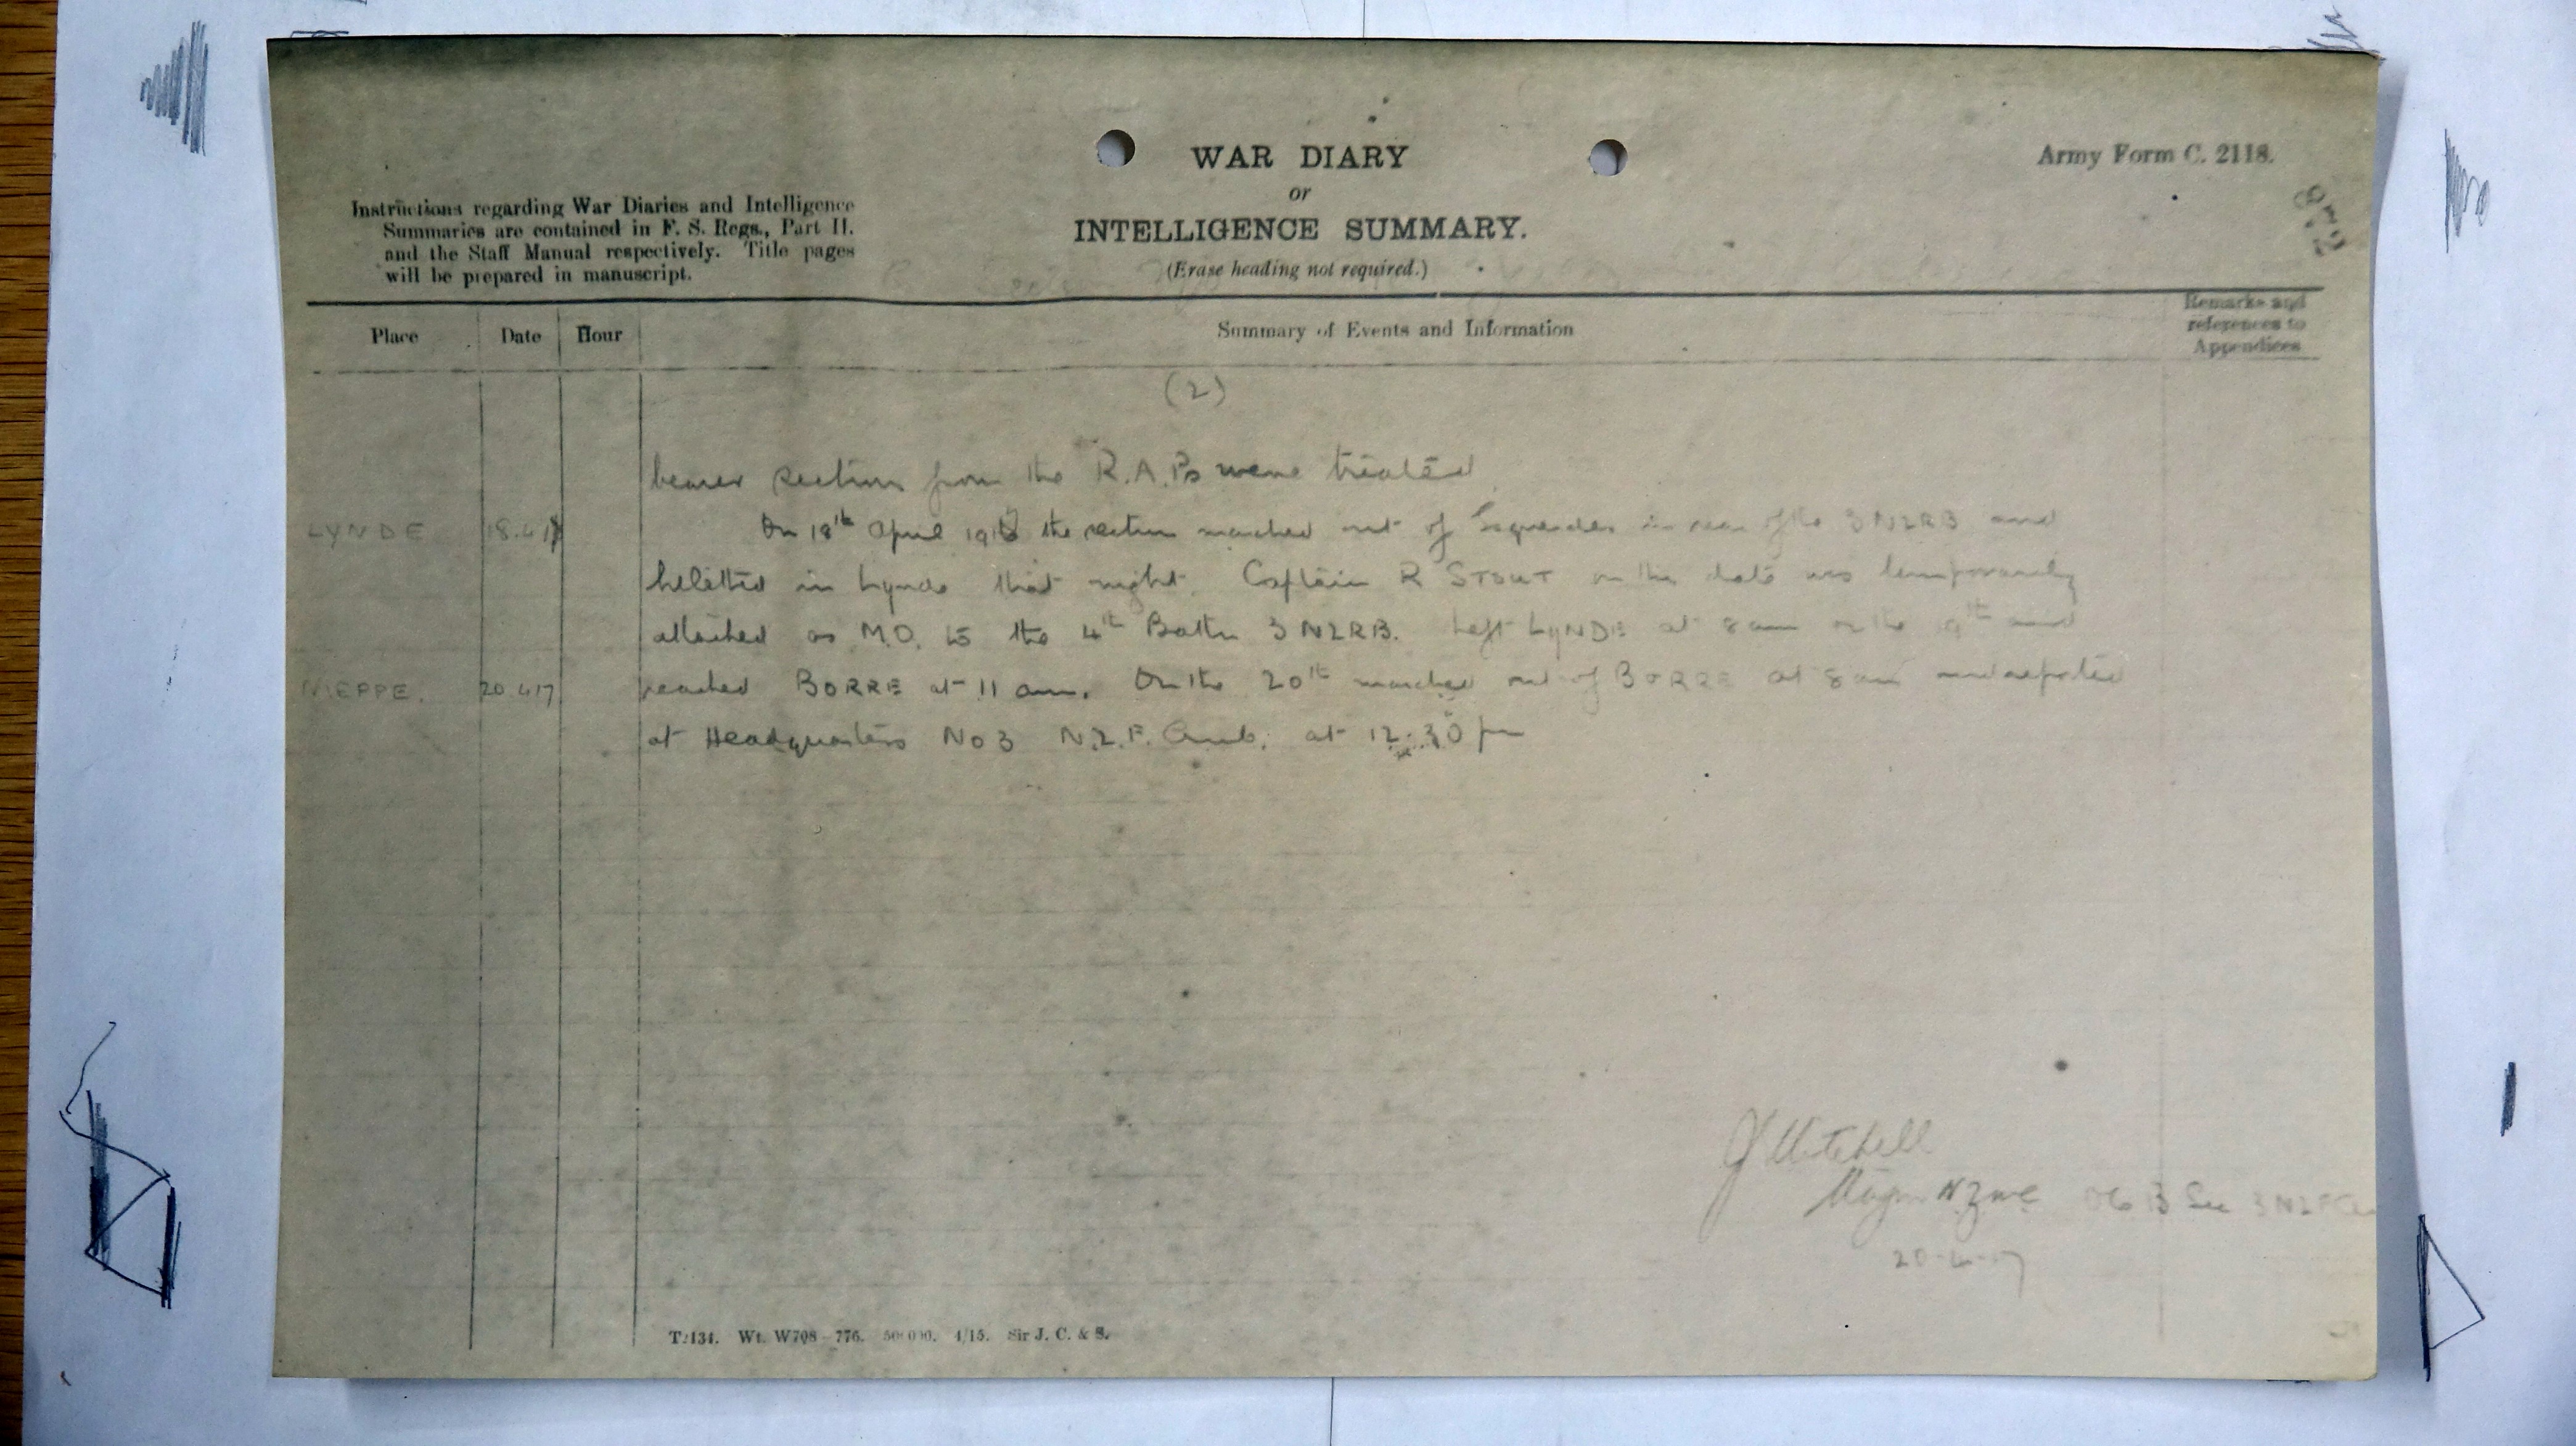 WAR DIARY
or
INTELLIGENCE SUMMARY.
(Erase heading not required.)
Army Form C. 2118.
Instructions regarding War Diaries and Intelligence
Summaries are contained in F. S. Regs., Part II.
and the Staff Manual respectively. Title pages
will be prepared in manuscript.
Place Date Hour Summary of Events and Information Remarks and references to Appendices
(2)
bearer section from the R.A.Ps were treated
LYNDE 18.4.17 On 18th April 1917 the section marched out of in rear of the 3 NZRB and
billetted in Lynde that night. Captain R STOUT on this date was temporarily
attached as M.O. to the 4th Battn 3 NZRB. Left LYNDE at 8 am on the 19th and
NIEPPE. 20.4.17 reached BORRE at 11 am. On the 20th marched out of BORRE at 8 am and reported
at Headquarters No 3 N.Z.F. Amb. at 12.30 pm
J Mitchell
Major NZMC OC B Sec 3 NZF
20-4-17
T2134. Wt. W708—776. 500000. 4/15. Sir J. C. & S.